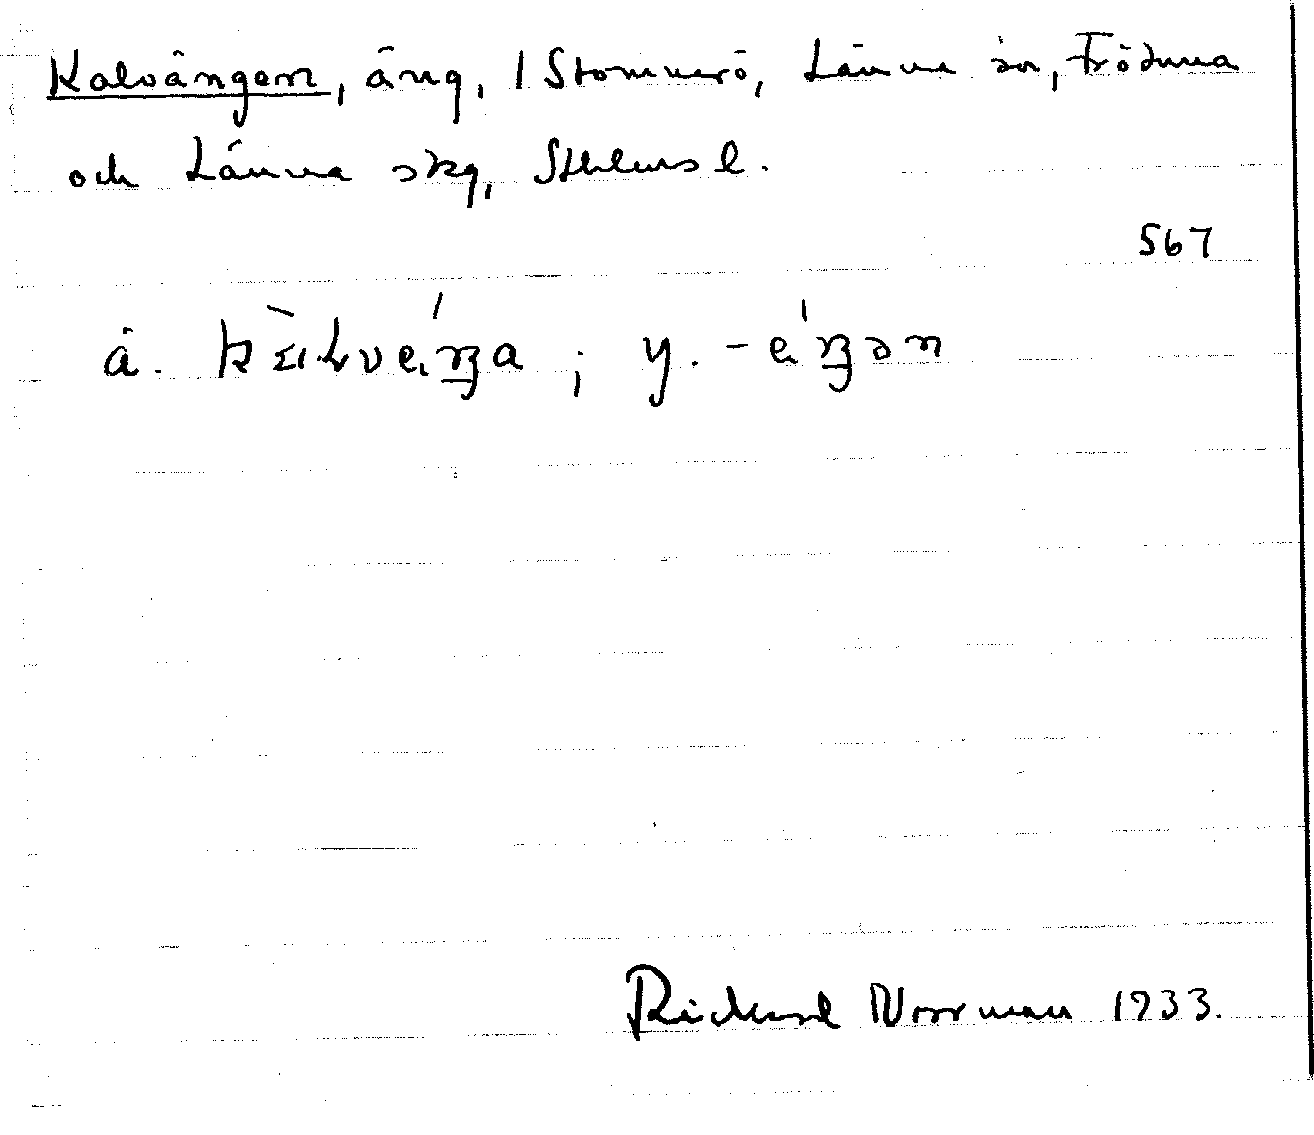 Kalvängen, äng, 1 Stomnerö, Länna sn, Frötuna
och Länna skg, Sthlms l.
567
ä. ; y.
Rickard Norrman 1933.